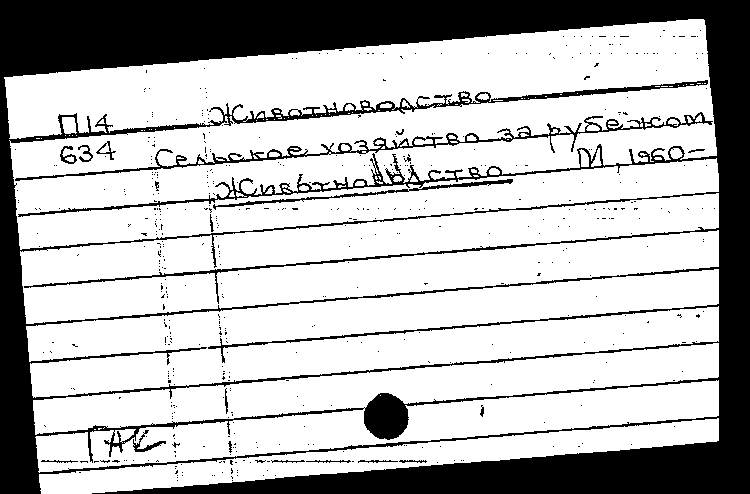 П14 Животноводство
634 Сельское хозяйство за рубежом
Животноводство М, 1960-
ГАК